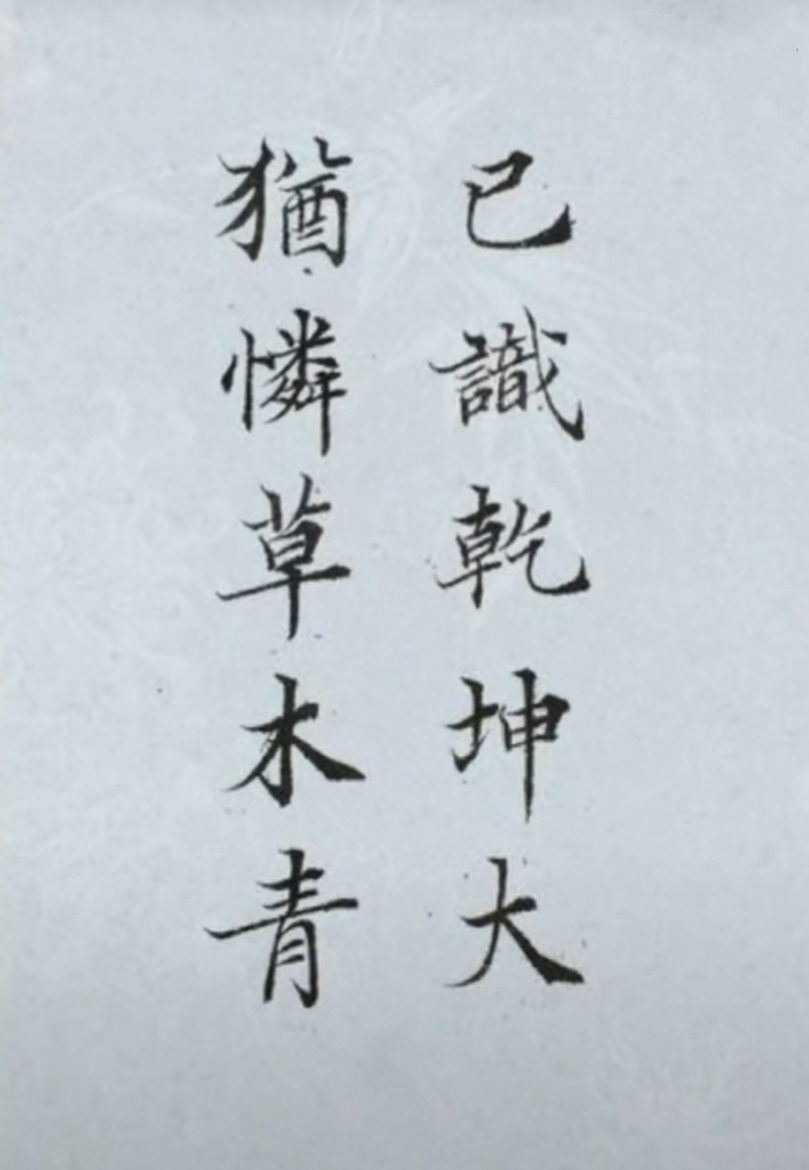 已識乾坤大
猶憐草木青